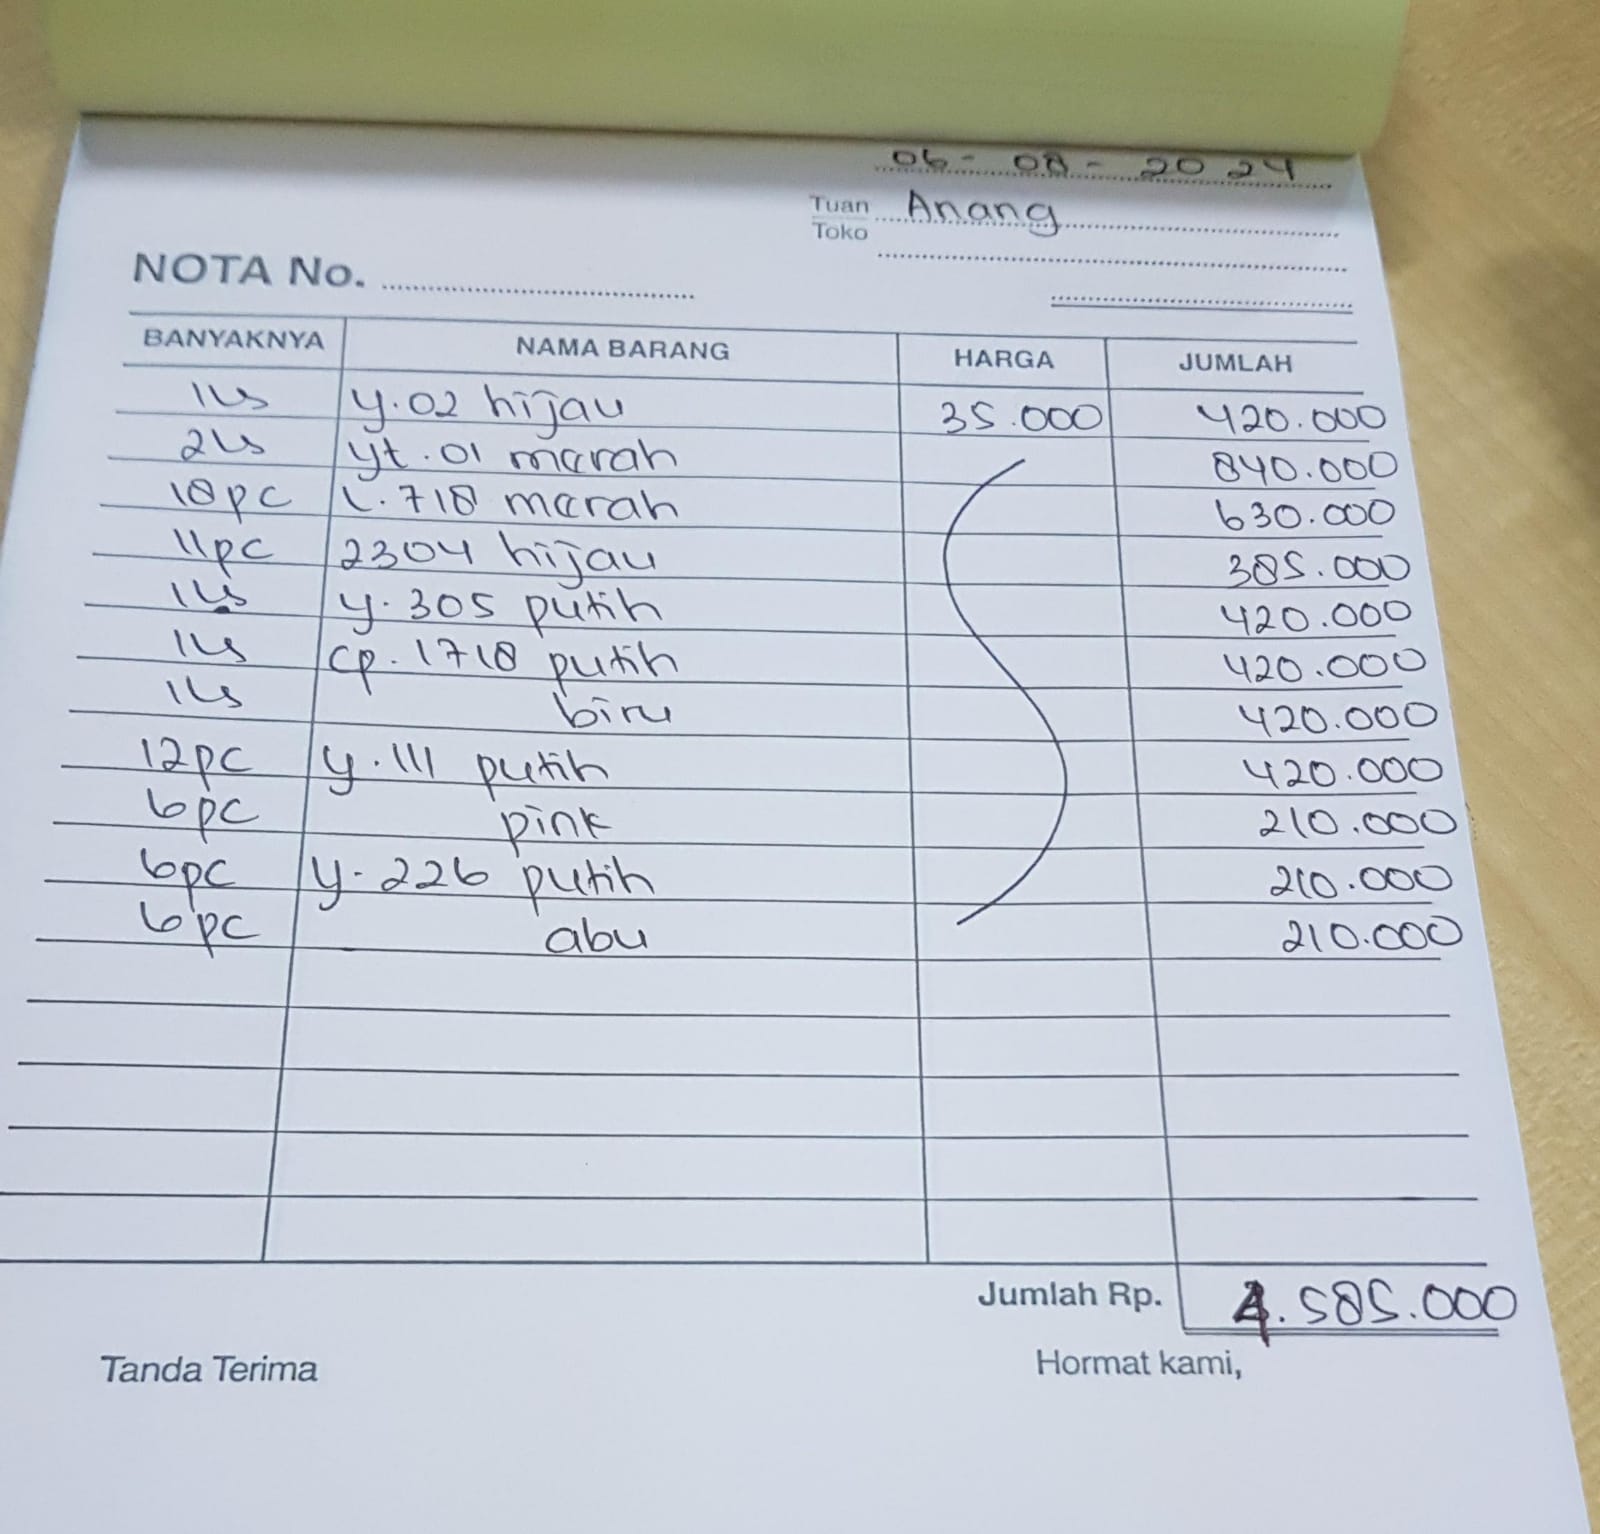 06 - 08 - 2024
Tuan Anang
Toko
NOTA No.
BANYAKNYA NAMA BARANG HARGA JUMLAH
1Ls y.02 hijau 35.000 420.000
2Ls yt.01 merah 840.000
18pc L.718 merah 630.000
11pc 2304 hijau 385.000
1Ls y.305 putih 420.000
1Ls cp.1718 putih 420.000
1Ls biru 420.000
12pc y.111 putih 420.000
6pc pink 210.000
6pc y-226 putih 210.000
6pc abu 210.000
Jumlah Rp. 4.585.000
Tanda Terima Hormat kami,